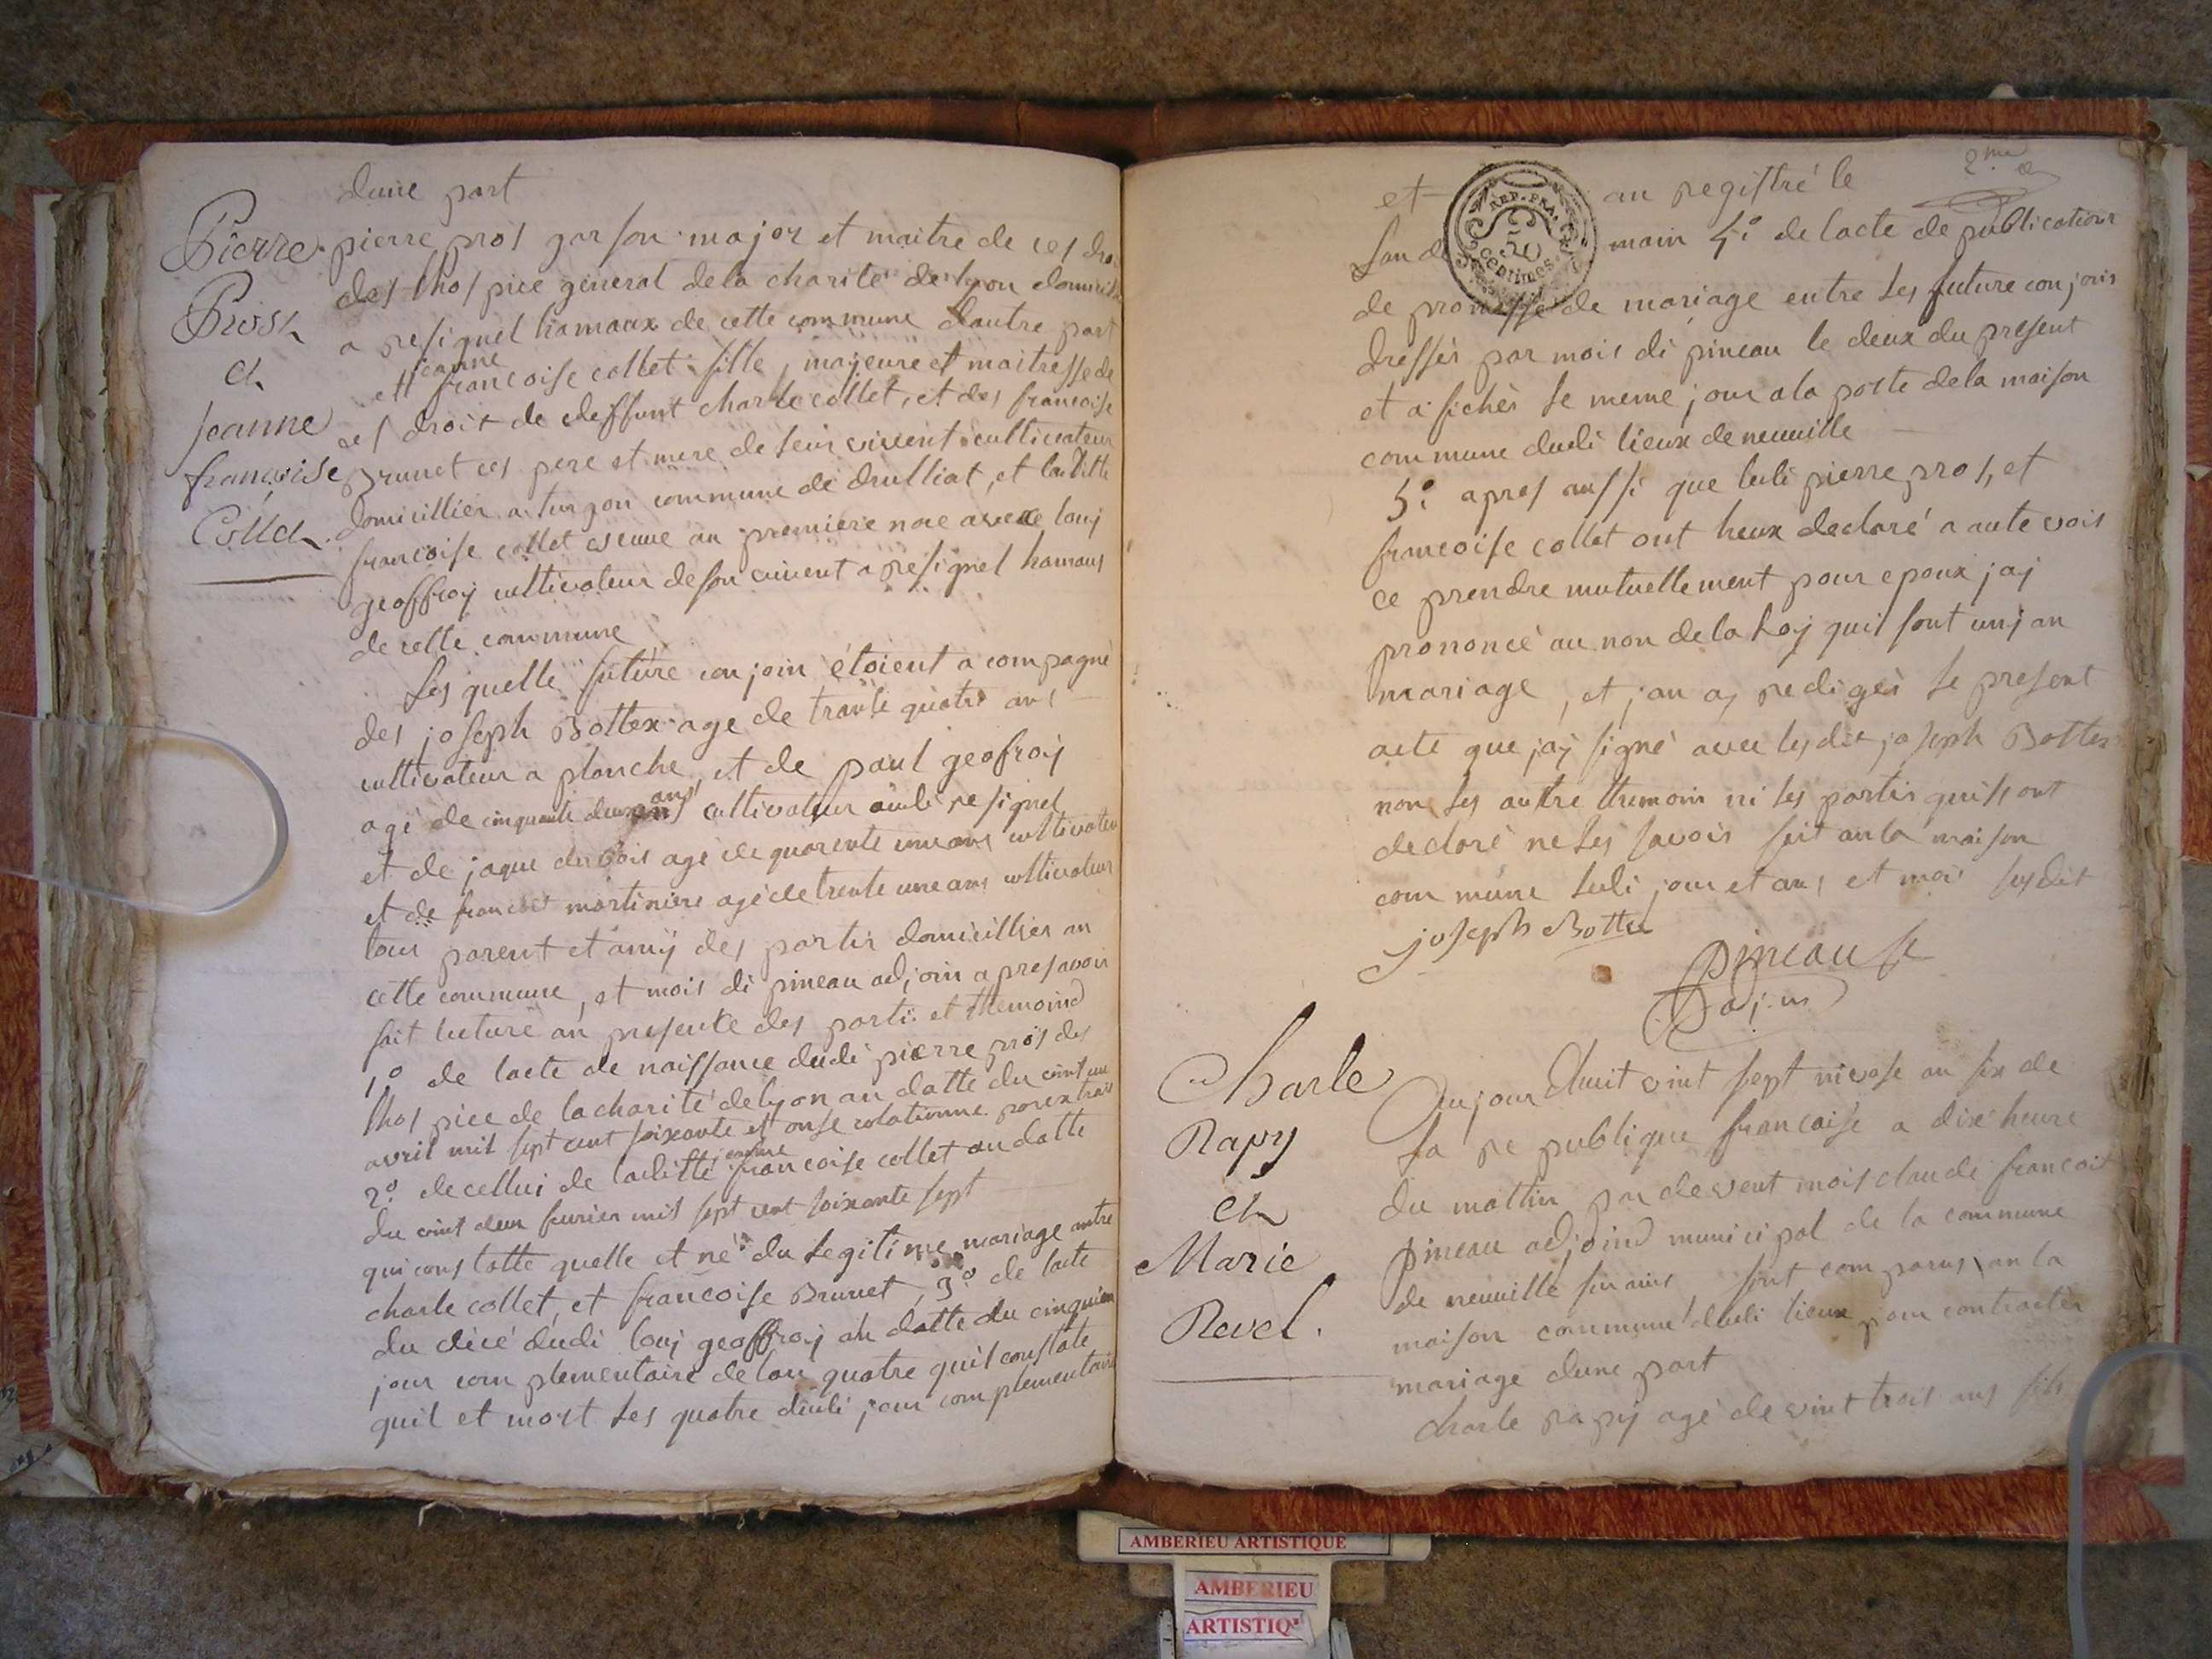 dune part
Pierre
Pross
et
jeanne
françoise
Collet.
pierre pros garson major et maitre de ces dro
des lhospice general dela charité de lyon domicil
a resignel hamaux de cette commune dautre part
et jeanne francoise collet fille, majeure et maitresse de
ces droit de deffunt charle collet, et des francoise
Brunet ces pere et mere de leur vivent cultivateur
domicillier a turgon commune de drulliat, et laditte
francoise collet veuve an premiere noce avece louj
geoffroy cultivateur de son vivent a resignel hamaus
de cette commune
Les quelle future conjoin étoient acompagné
des joseph Bottex age de trante quatre ans
cultivateur a planche, et de paul geofroy
agé de cinquante deux ans cultivateur audi resignel
et de jaque dubois age de quarente une ans cultivateu
et de francois martiniere agé de trente une ans cultivateur
tous parent et amÿ des partis domicillier an
cette commune, et mois di pineau adjoin apres avoir
fait lecture an presente des parti et themoind
1º de lacte de naissance dudi pierre pros des
lhospice de la charité de lyon an datte du vint une
avril mil sept cent soixante et onse colationne par extrait
2º. de cellui de laditte jeanne francoise collet an datte
du vint deux feurier mil sept cent soixante sept
qui constatte quelle et né du Legitime mariage antre
charle collet, et francoise Brunet, 3º de lacte
du décé dudi louj geoffroy an datte du cinquiem
jour complementaire de lan quatre quil constate
quil et mort les quatre dudi jour complementair
2me
et au registré le
Lan de main 4º. de lacte de publication
REP. FRA.
50
centimes.
de promesse de mariage entre les future conjoins
dressés par mois di pineau le deux du present
et afichés le meme jour a la porte dela maison
commune dudi lieux de neuville
5º. apres aussi que ledi pierre pros, et
francoise collet ont heux declaré a aute vois
ce prendre mutuellement pour epoux jaj
prononcé au non de la Loy quil sont unj an
mariage, et jan aj redigés le present
acte que jaj signé avec les dit joseph Bottex
non les autre themoin ni les partis quil ont
declaré ne les savoir fait an la maison
commune ledi jour et ans et moi susdit
joseph Bottex
pineau
adjoin
Charle
Rapy
et
Marie
Revel.
Aujour dhuit vint sept nivose an six de
La republique francaise a dixe heure
du mattin par devent mois claude francois
pineau adjoind municipal de la commune
de neuville sur ains sont comparus an la
maison commune dudi lieux pour contracter
mariage dune part
charle rapÿ agé de vint trois ans fils
AMBERIEU ARTISTIQUE
AMBERIEU
ARTISTIQ